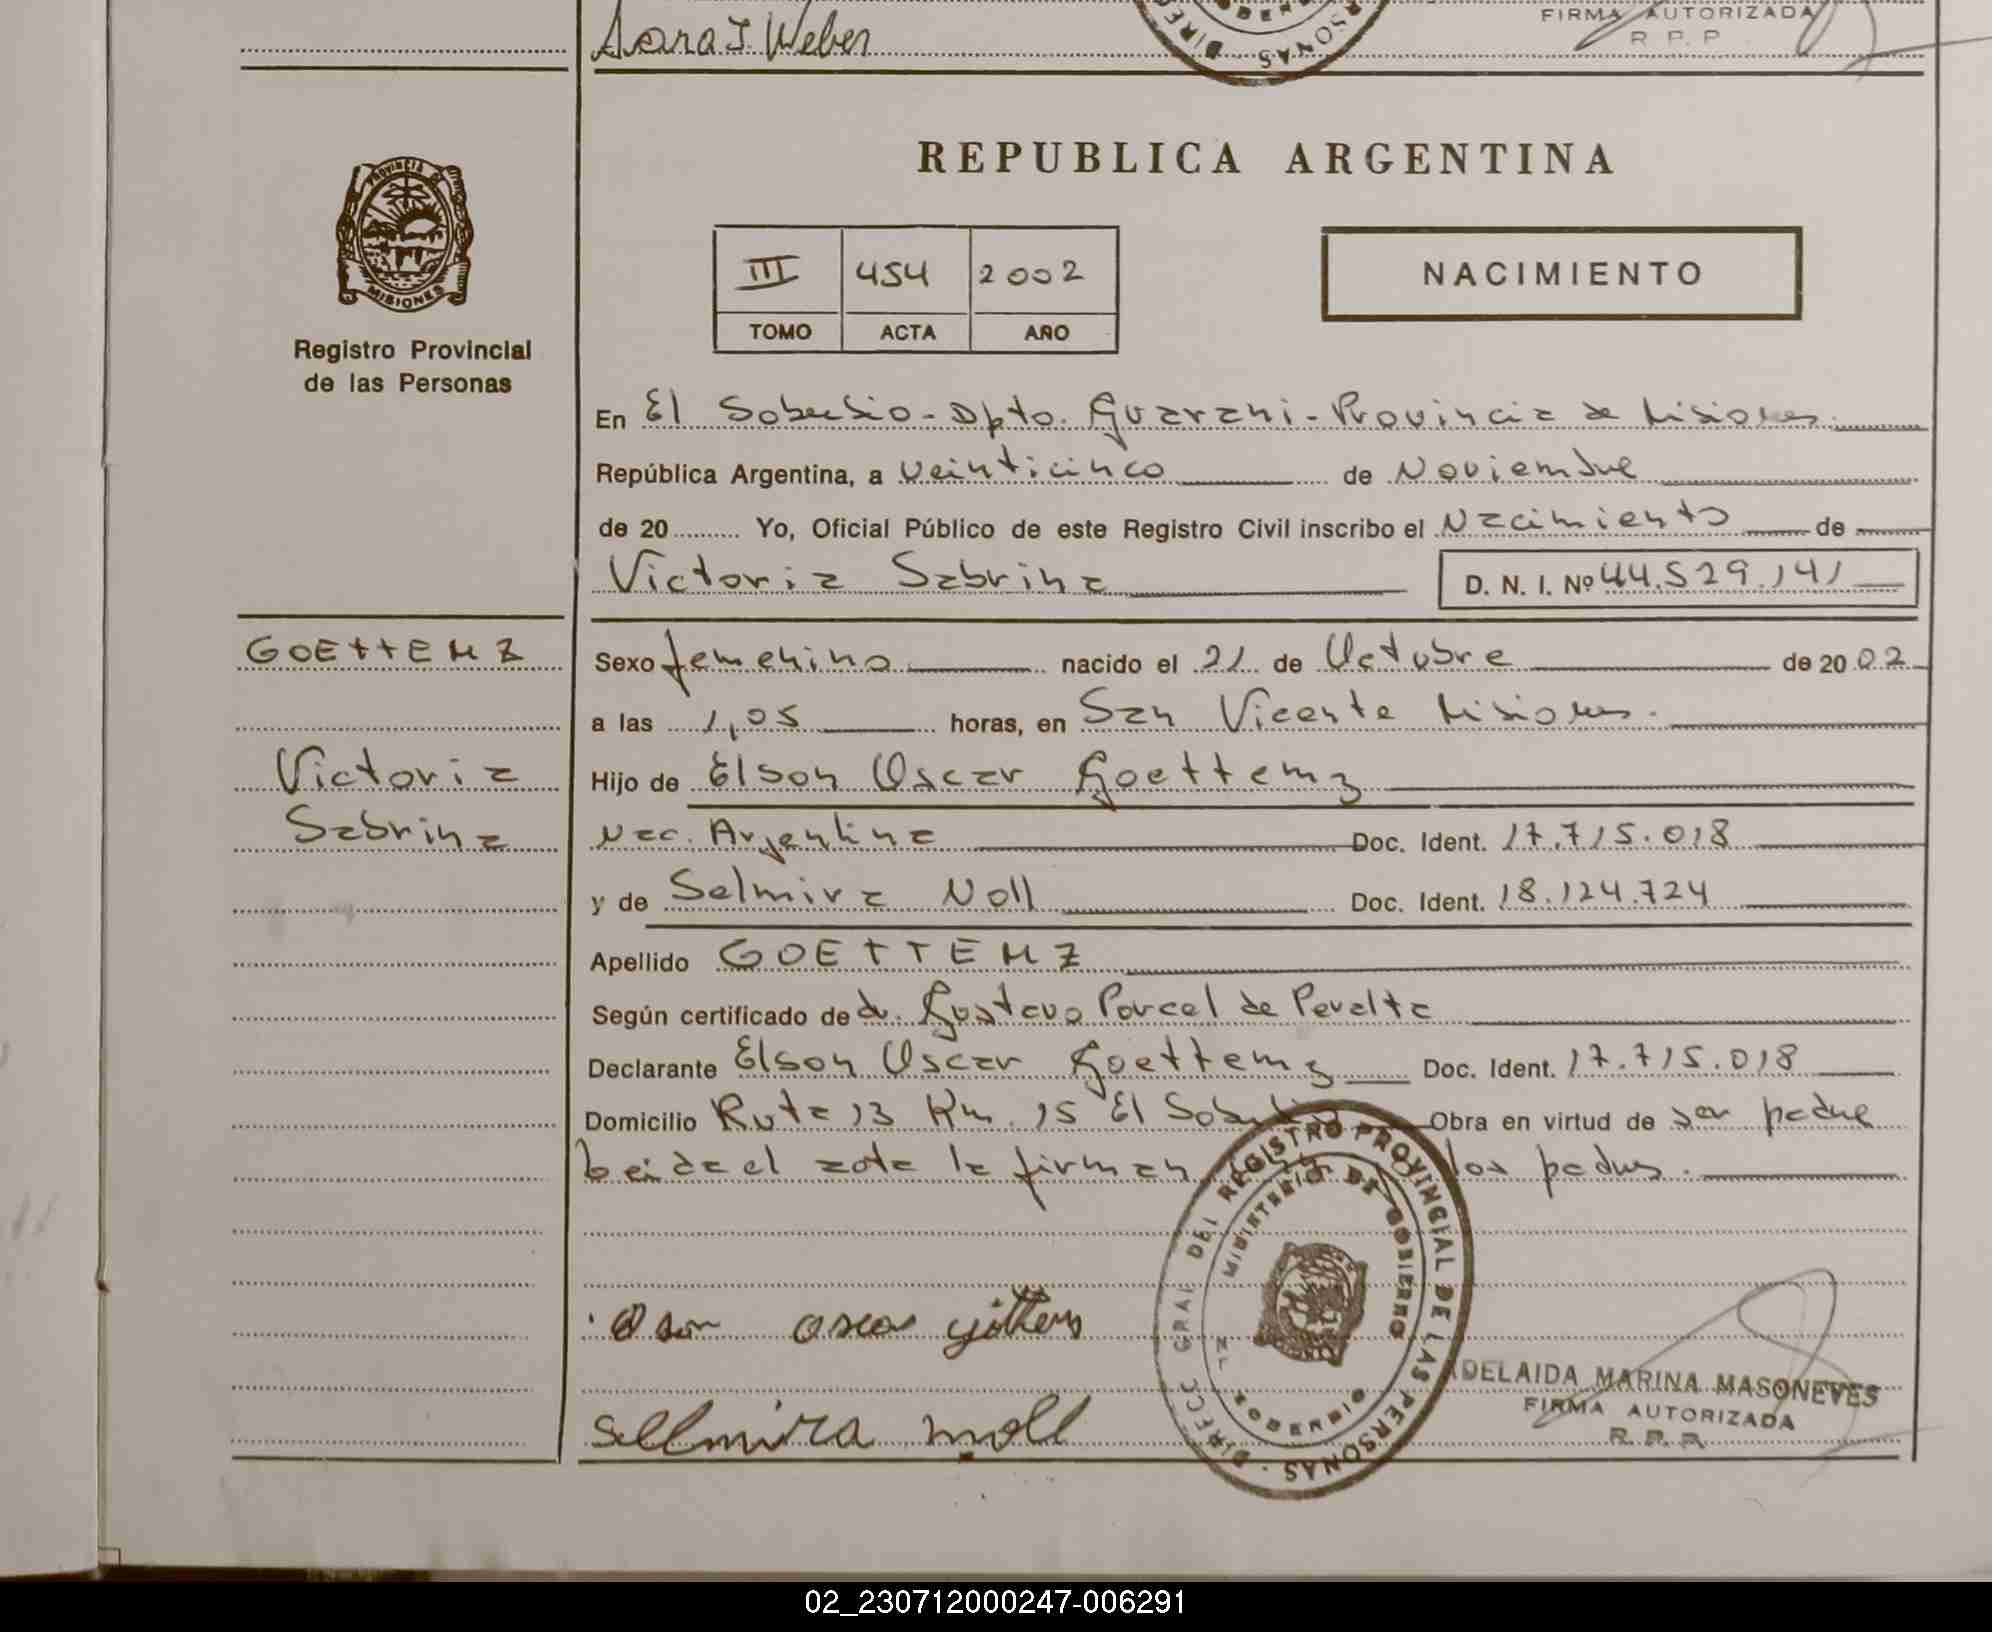 Sara I. Weber
FIRMA AUTORIZADA
R. P. P.
PROVINCIA DE
MISIONES
Registro Provincial
de las Personas
REPUBLICA ARGENTINA
III 454 2002
TOMO ACTA AÑO
NACIMIENTO
En El Soberbio - Dpto. Guarani - Provincia de Misiones.
República Argentina, a veinticinco de Noviembre
de 20 Yo, Oficial Público de este Registro Civil inscribo el Nacimiento de
Victoria Sabrina D. N. I. Nº 44.529.141
GOETTEMZ
Victoria
Sabrina
Sexo femenino nacido el 21 de Octubre de 2002
a las 1,05 horas, en San Vicente Misiones.
Hijo de Elson Oscar Goettemz
Nac. Argentina Doc. Ident. 17.715.018
y de Selmira Noll Doc. Ident. 18.124.724
Apellido GOETTEMZ
Según certificado de dr. Gustavo Porcel de Peralta
Declarante Elson Oscar Goettemz Doc. Ident. 17.715.018
Domicilio Ruta 13 Km. 15 El Soberbio Obra en virtud de ser padre
Leida el acta la firman los padres.
DIRECC GRAL DEL REGISTRO PROVINCIAL DE LAS PERSONAS
MINISTERIO DE GOBIERNO
EL SOBERBIO
oscar
sellmira noll
ADELAIDA MARINA MASONEVES
FIRMA AUTORIZADA
R. P. P.
02_230712000247-006291